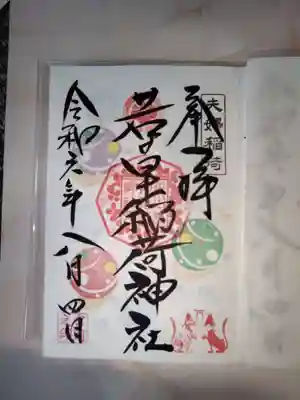 奉拝
夫婦稲荷
若里稲荷神社
令和六年八月四日